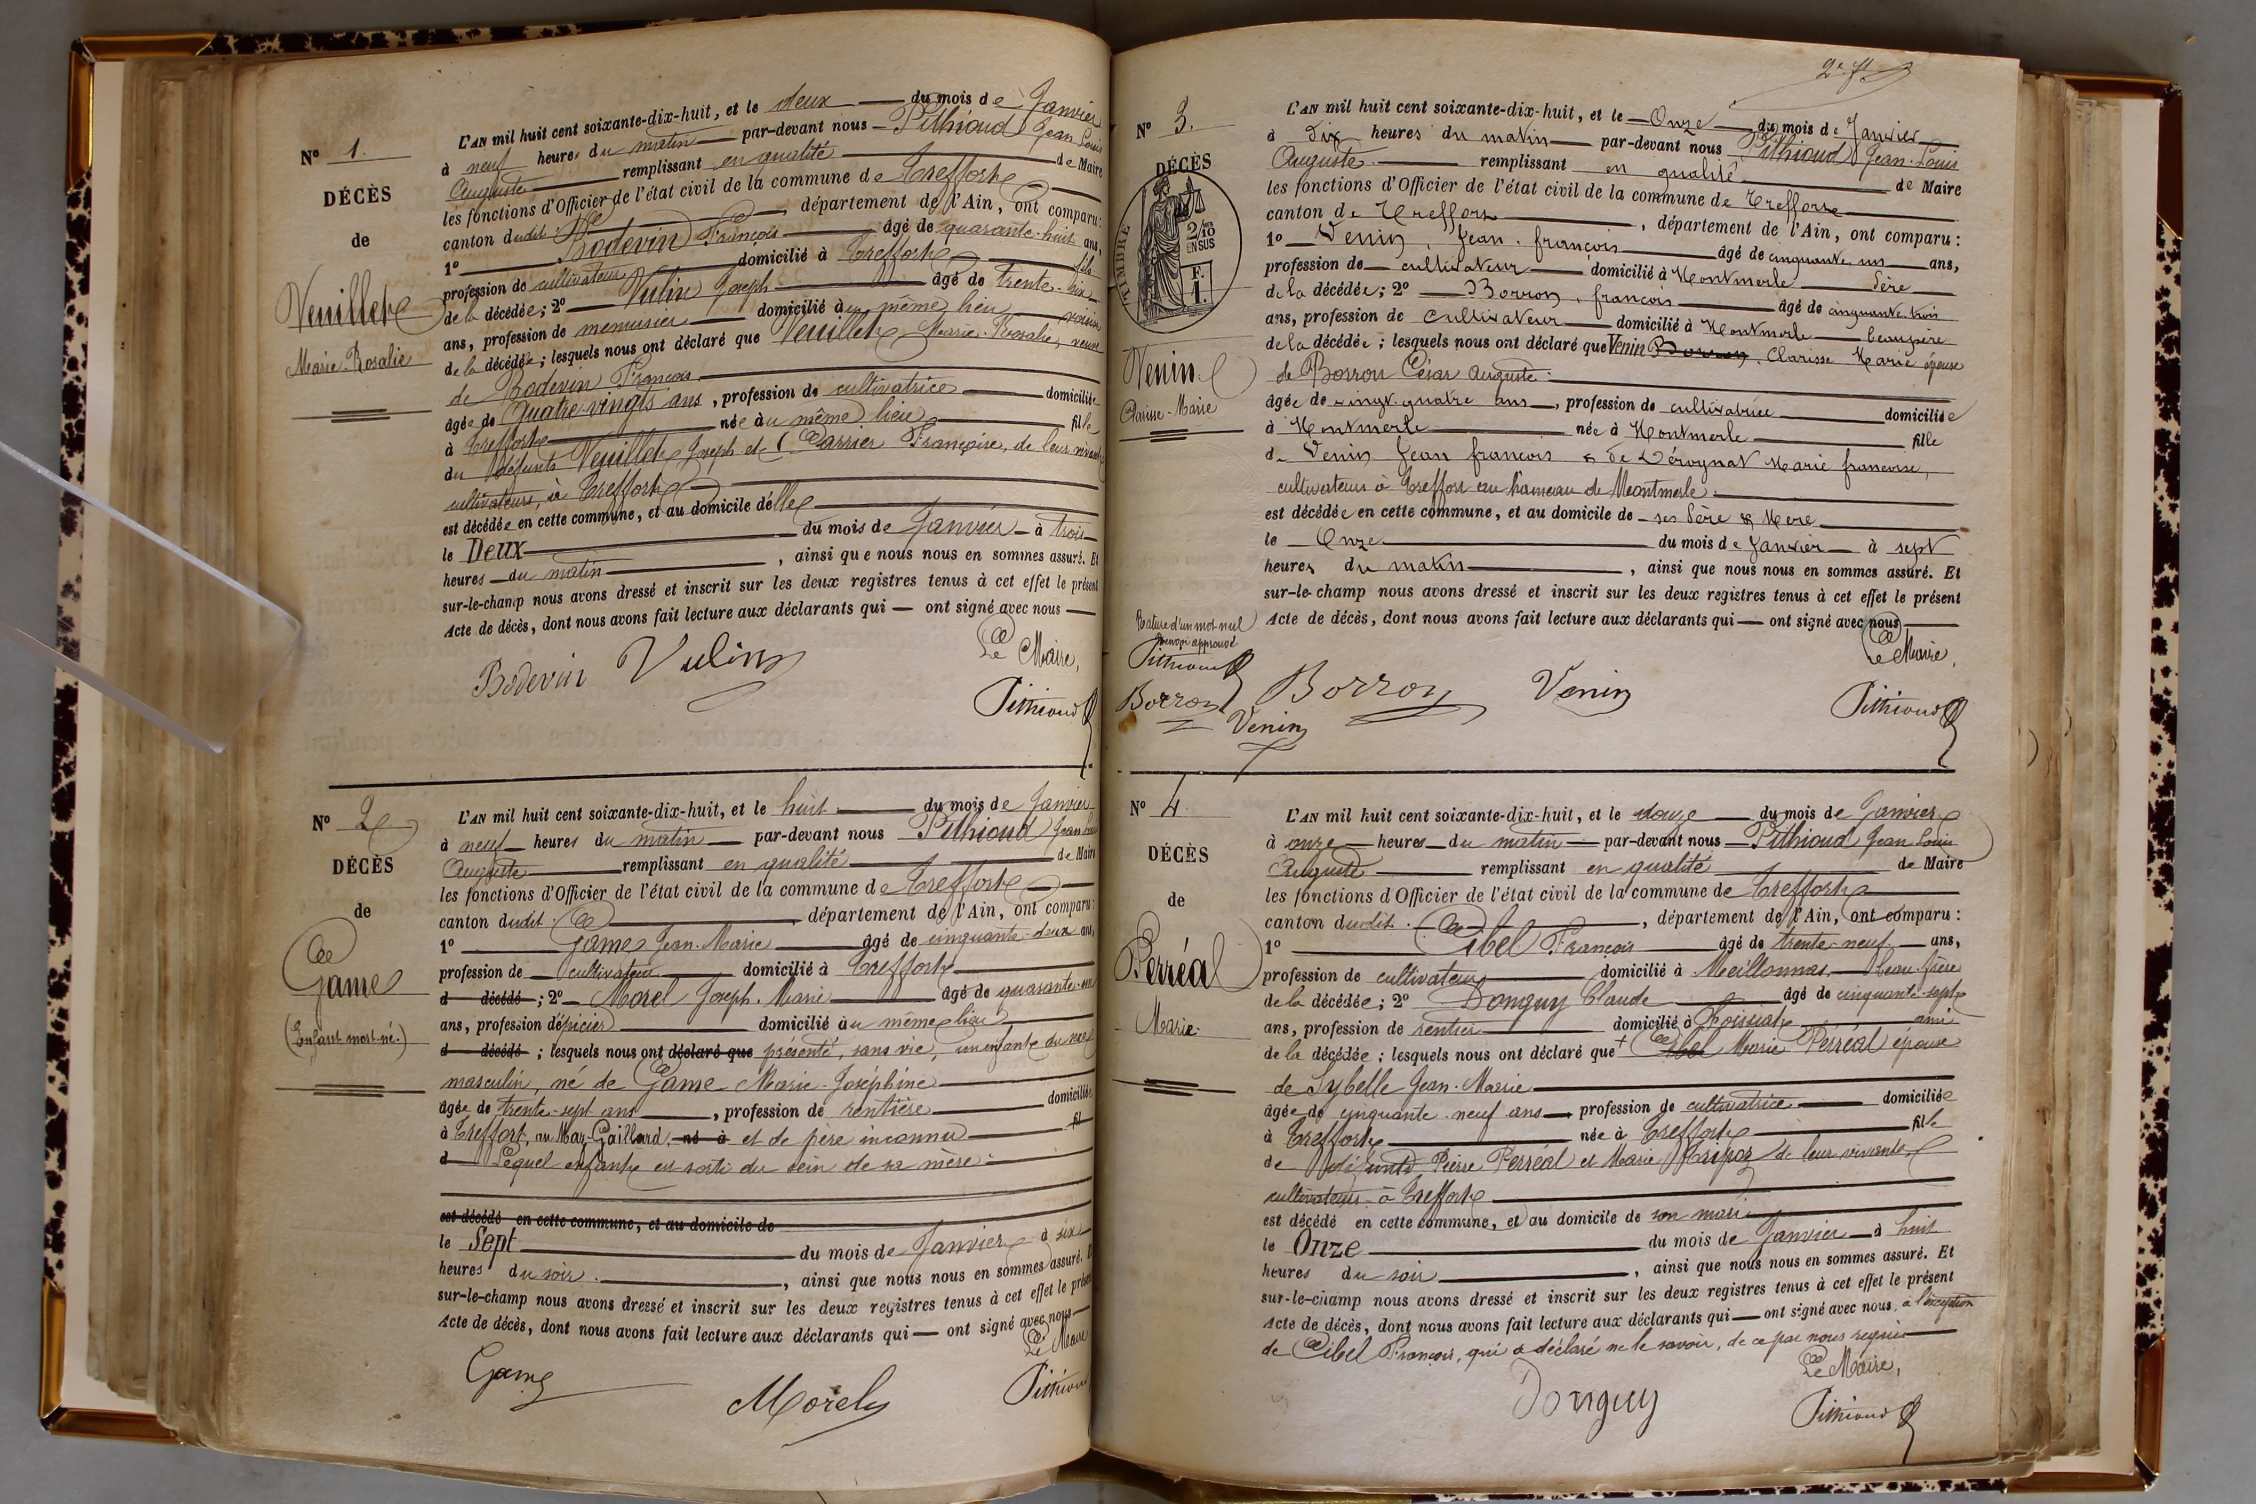 N° 1.
DÉCÈS
de
Veuillet
Marie-Rosalie
L'AN mil huit cent soixante-dix-huit, et le deux du mois de Janvier
à neuf heures du matin par-devant nous Pithioud Jean Louis
Auguste remplissant en qualité de Maire
les fonctions d'Officier de l'état civil de la commune de Treffort
canton dudit département de l'Ain, ont comparu:
1° Bodevin François âgé de quarante-huit ans,
profession de cultivateur domicilié à Treffort fils
de la décédée; 2° Vulin Joseph âgé de trente-six
ans, profession de menuisier domicilié au même lieu voisin
de la décédée; lesquels nous ont déclaré que Veuillet Marie-Rosalie, veuve
de Bodevin François
âgée de Quatre-vingts ans, profession de cultivatrice domiciliée
à Treffort née au même lieu fille
du défunts Veuillet Joseph et Carrier Françoise, de leur vivant
cultivateurs, à Treffort
est décédée en cette commune, et au domicile d'elle
le Deux du mois de Janvier à trois
heures du matin, ainsi que nous nous en sommes assuré. Et
sur-le-champ nous avons dressé et inscrit sur les deux registres tenus à cet effet le présent
Acte de décès, dont nous avons fait lecture aux déclarants qui ont signé avec nous
Le Maire,
Bodevin Vulin
Pithioud
N° 2
DÉCÈS
de
Game
(Enfant mort-né.)
L'AN mil huit cent soixante-dix-huit, et le huit du mois de Janvier
à neuf heures du matin par-devant nous Pithioud Jean Louis
Auguste remplissant en qualité de Maire
les fonctions d'Officier de l'état civil de la commune de Treffort
canton dudit. département de l'Ain, ont comparu:
1° Game Jean-Marie âgé de cinquante-deux ans,
profession de cultivateur domicilié à Treffort
d décédé; 2° Morel Joseph-Marie âgé de quarante-un
ans, profession d'épicier domicilié au même lieu
d décédé; lesquels nous ont déclaré que présenté, sans vie, un enfant du sexe
masculin, né de Game Marie-Joséphine
âgée de trente-sept ans, profession de rentière domiciliée
à Treffort, au Maz-Gaillard, né à et de père inconnu fil
d Lequel enfant est sorti du sein de sa mère.
est décédé en cette commune, et au domicile de
le Sept du mois de Janvier à six
heures du soir., ainsi que nous nous en sommes assuré. Et
sur-le-champ nous avons dressé et inscrit sur les deux registres tenus à cet effet le présent
Acte de décès, dont nous avons fait lecture aux déclarants qui ont signé avec nous
Le Maire
Game Morel Pithioud
2e f
N° 3.
DÉCÈS
TIMBRE
2/10
EN SUS
F.
1.
Venin
Clarisse-Marie
L'AN mil huit cent soixante-dix-huit, et le Onze du mois de Janvier
à Dix heures du matin par-devant nous Pithioud Jean-Louis
Auguste remplissant en qualité de Maire
les fonctions d'Officier de l'état civil de la commune de Treffort
canton de Treffort, département de l'Ain, ont comparu:
1° Venin, Jean-françois âgé de cinquante un ans,
profession de cultivateur domicilié à Montmerle Père
de la décédée; 2° Borron, françois âgé de cinquante trois
ans, profession de cultivateur domicilié à Montmerle beaupère
de la décédée; lesquels nous ont déclaré que Venin Borron, Clarisse Marie épouse
de Borron César Auguste.
âgée de vingt-quatre ans, profession de cultivatrice domiciliée
à Montmerle née à Montmerle fille
de Venin Jean françois & de Marie francoise,
cultivateurs à Treffort au hameau de Montmerle.
est décédée en cette commune, et au domicile de ses Père & Mere
le Onze du mois de Janvier à sept
heures du matin, ainsi que nous nous en sommes assuré. Et
sur-le-champ nous avons dressé et inscrit sur les deux registres tenus à cet effet le présent
Acte de décès, dont nous avons fait lecture aux déclarants qui ont signé avec nous
Le Maire,
Rature d'un mot nul
renvoi approuvé
Pithioud
Borron
Venin
Borron Venin Pithioud
N° 4.
DÉCÈS
de
Perréal
Marie.
L'AN mil huit cent soixante-dix-huit, et le douze du mois de Janvier
à onze heures du matin par-devant nous Pithioud Jean Louis
Auguste remplissant en qualité de Maire
les fonctions d'Officier de l'état civil de la commune de Treffort
canton dudit., département de l'Ain, ont comparu:
1° Cibel François âgé de trente-neuf ans,
profession de cultivateur domicilié à Meillonnas beau-frère
de la décédée; 2° Donguy Claude âgé de cinquante-sept
ans, profession de rentier domicilié à Foissiat ami
de la décédée; lesquels nous ont déclaré que + Cibel Marie Perréal épouse
de Sybelle Jean-Marie
âgée de cinquante-neuf ans profession de cultivatrice domiciliée
à Treffort née à Treffort fille
de défunts Pierre Perréal et Marie de leur vivant
cultivateurs à Treffort
est décédé en cette commune, et au domicile de son mari
le Onze du mois de Janvier à huit
heures du soir, ainsi que nous nous en sommes assuré. Et
sur-le-champ nous avons dressé et inscrit sur les deux registres tenus à cet effet le présent
Acte de décès, dont nous avons fait lecture aux déclarants qui ont signé avec nous, à l'exception
de Cibel François, qui a déclaré ne le savoir, de ce par nous requis
Le Maire,
Donguy Pithioud